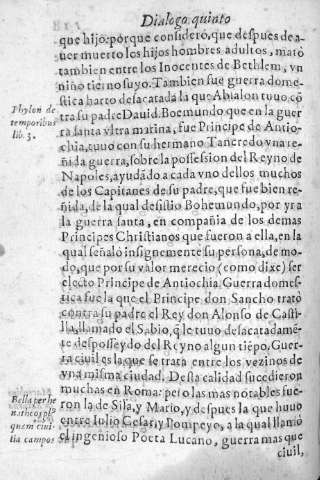 Dialogo quinto
que hijo: porque considerò, que despues de a-
uer muerto los hijos hombres adultos, matò
tambien entre los Inocentes de Bethlem, vn
niño tierno suyo. Tambien fue guerra dome-
stica harto desacatada la que Absalon tuuo cõ
tra su padre Dauid. Boemundo que en la guer
ra santa vltra marina, fue Principe de Antio-
chia, tuuo con su hermano Tancredo vna re-
ñida guerra, sobre la possession del Reyno de
Napoles, ayudãdo a cada vno dellos muchos
de los Capitanes de su padre, que fue bien re-
ñida, de la qual desistio Bohemundo, por yr a
la guerra santa, en compañia de los demas
Principes Christianos que fueron a ella, en la
qual señalò insignemente su persona, de mo-
do, que por su valor merecio (como dixe) ser
electo Principe de Antiochia. Guerra domes-
tica fue la que el Principe don Sancho tratò
contra su padre el Rey don Alonso de Casti-
lla, llamado el Sabio, q̃ le tuuo desacatadamẽ-
te desposseydo del Reyno algun tiẽpo. Guer-
ra ciuil es la que se trata entre los vezinos de
vna misma ciudad. Desta calidad sucedieron
muchas en Roma: pero las mas notables fue-
ron la de Sila, y Mario, y despues la que huuo
entre Iulio Cesar, y Pompeyo, a la qual llamò
el ingenioso Poeta Lucano, guerra mas que
ciuil,
Phylon de
temporibus
lib. 3.
Bella per he
quam ciui-
lia campos